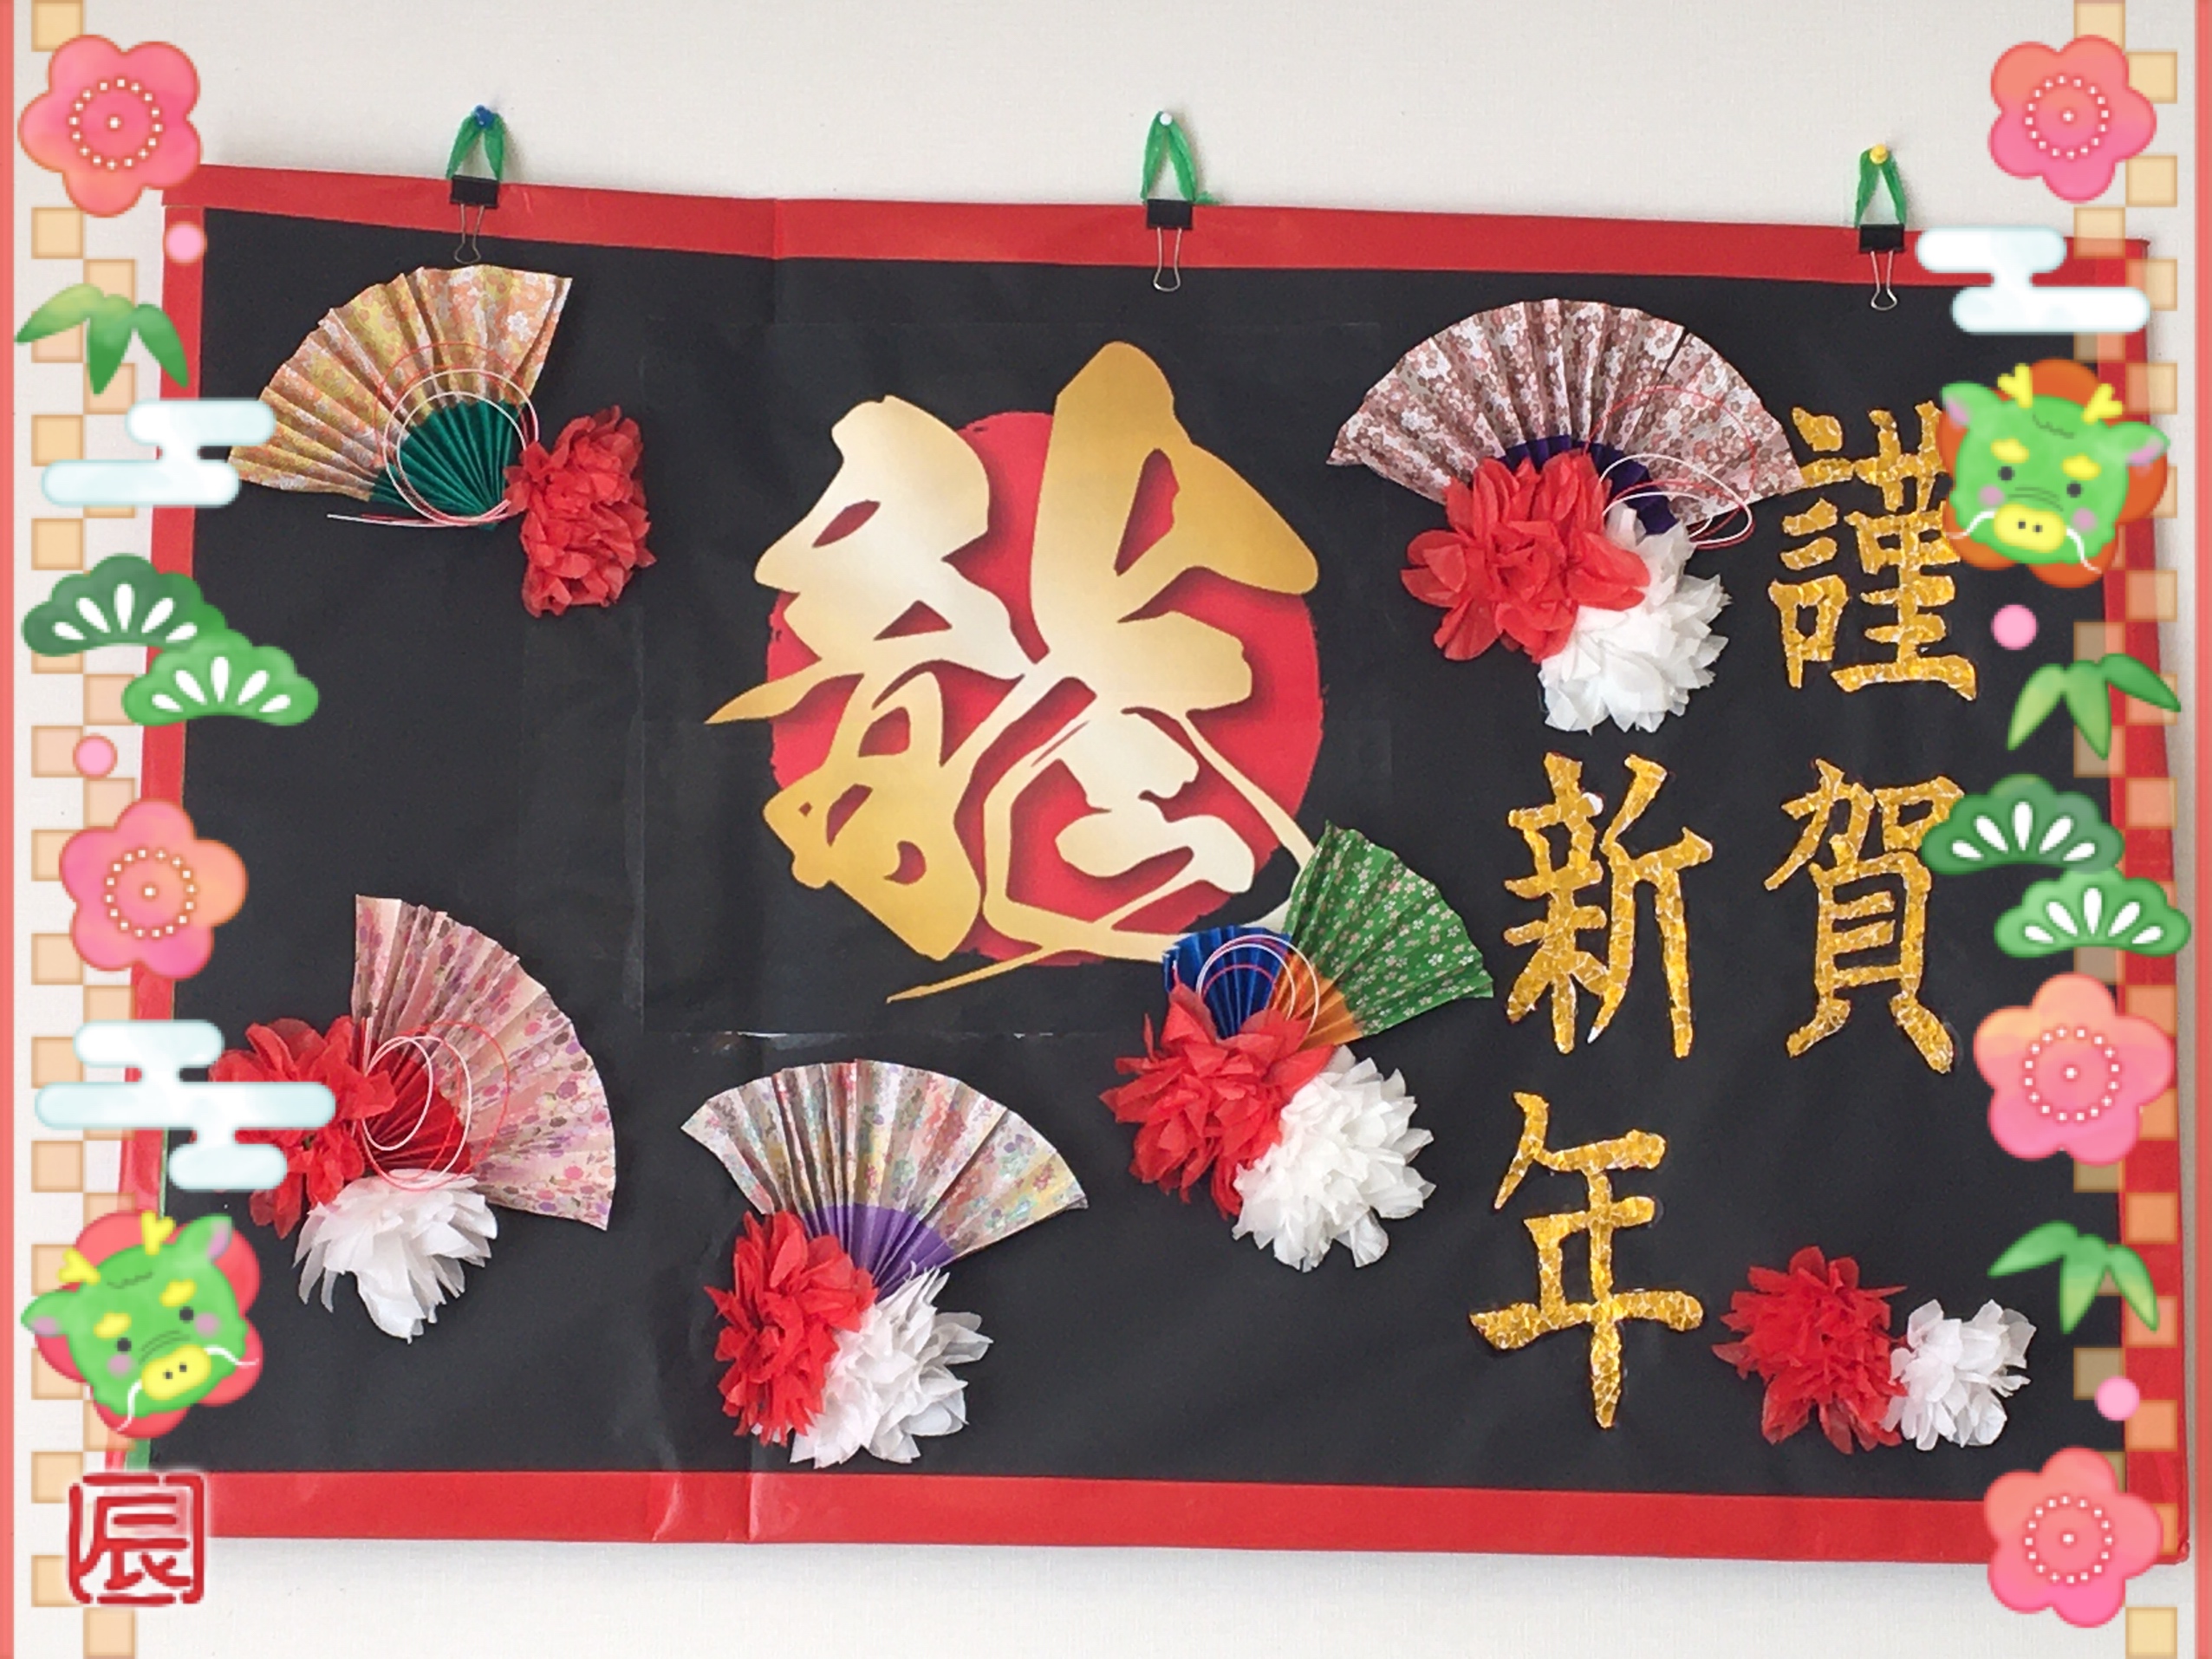 謹賀
新年
龍
辰